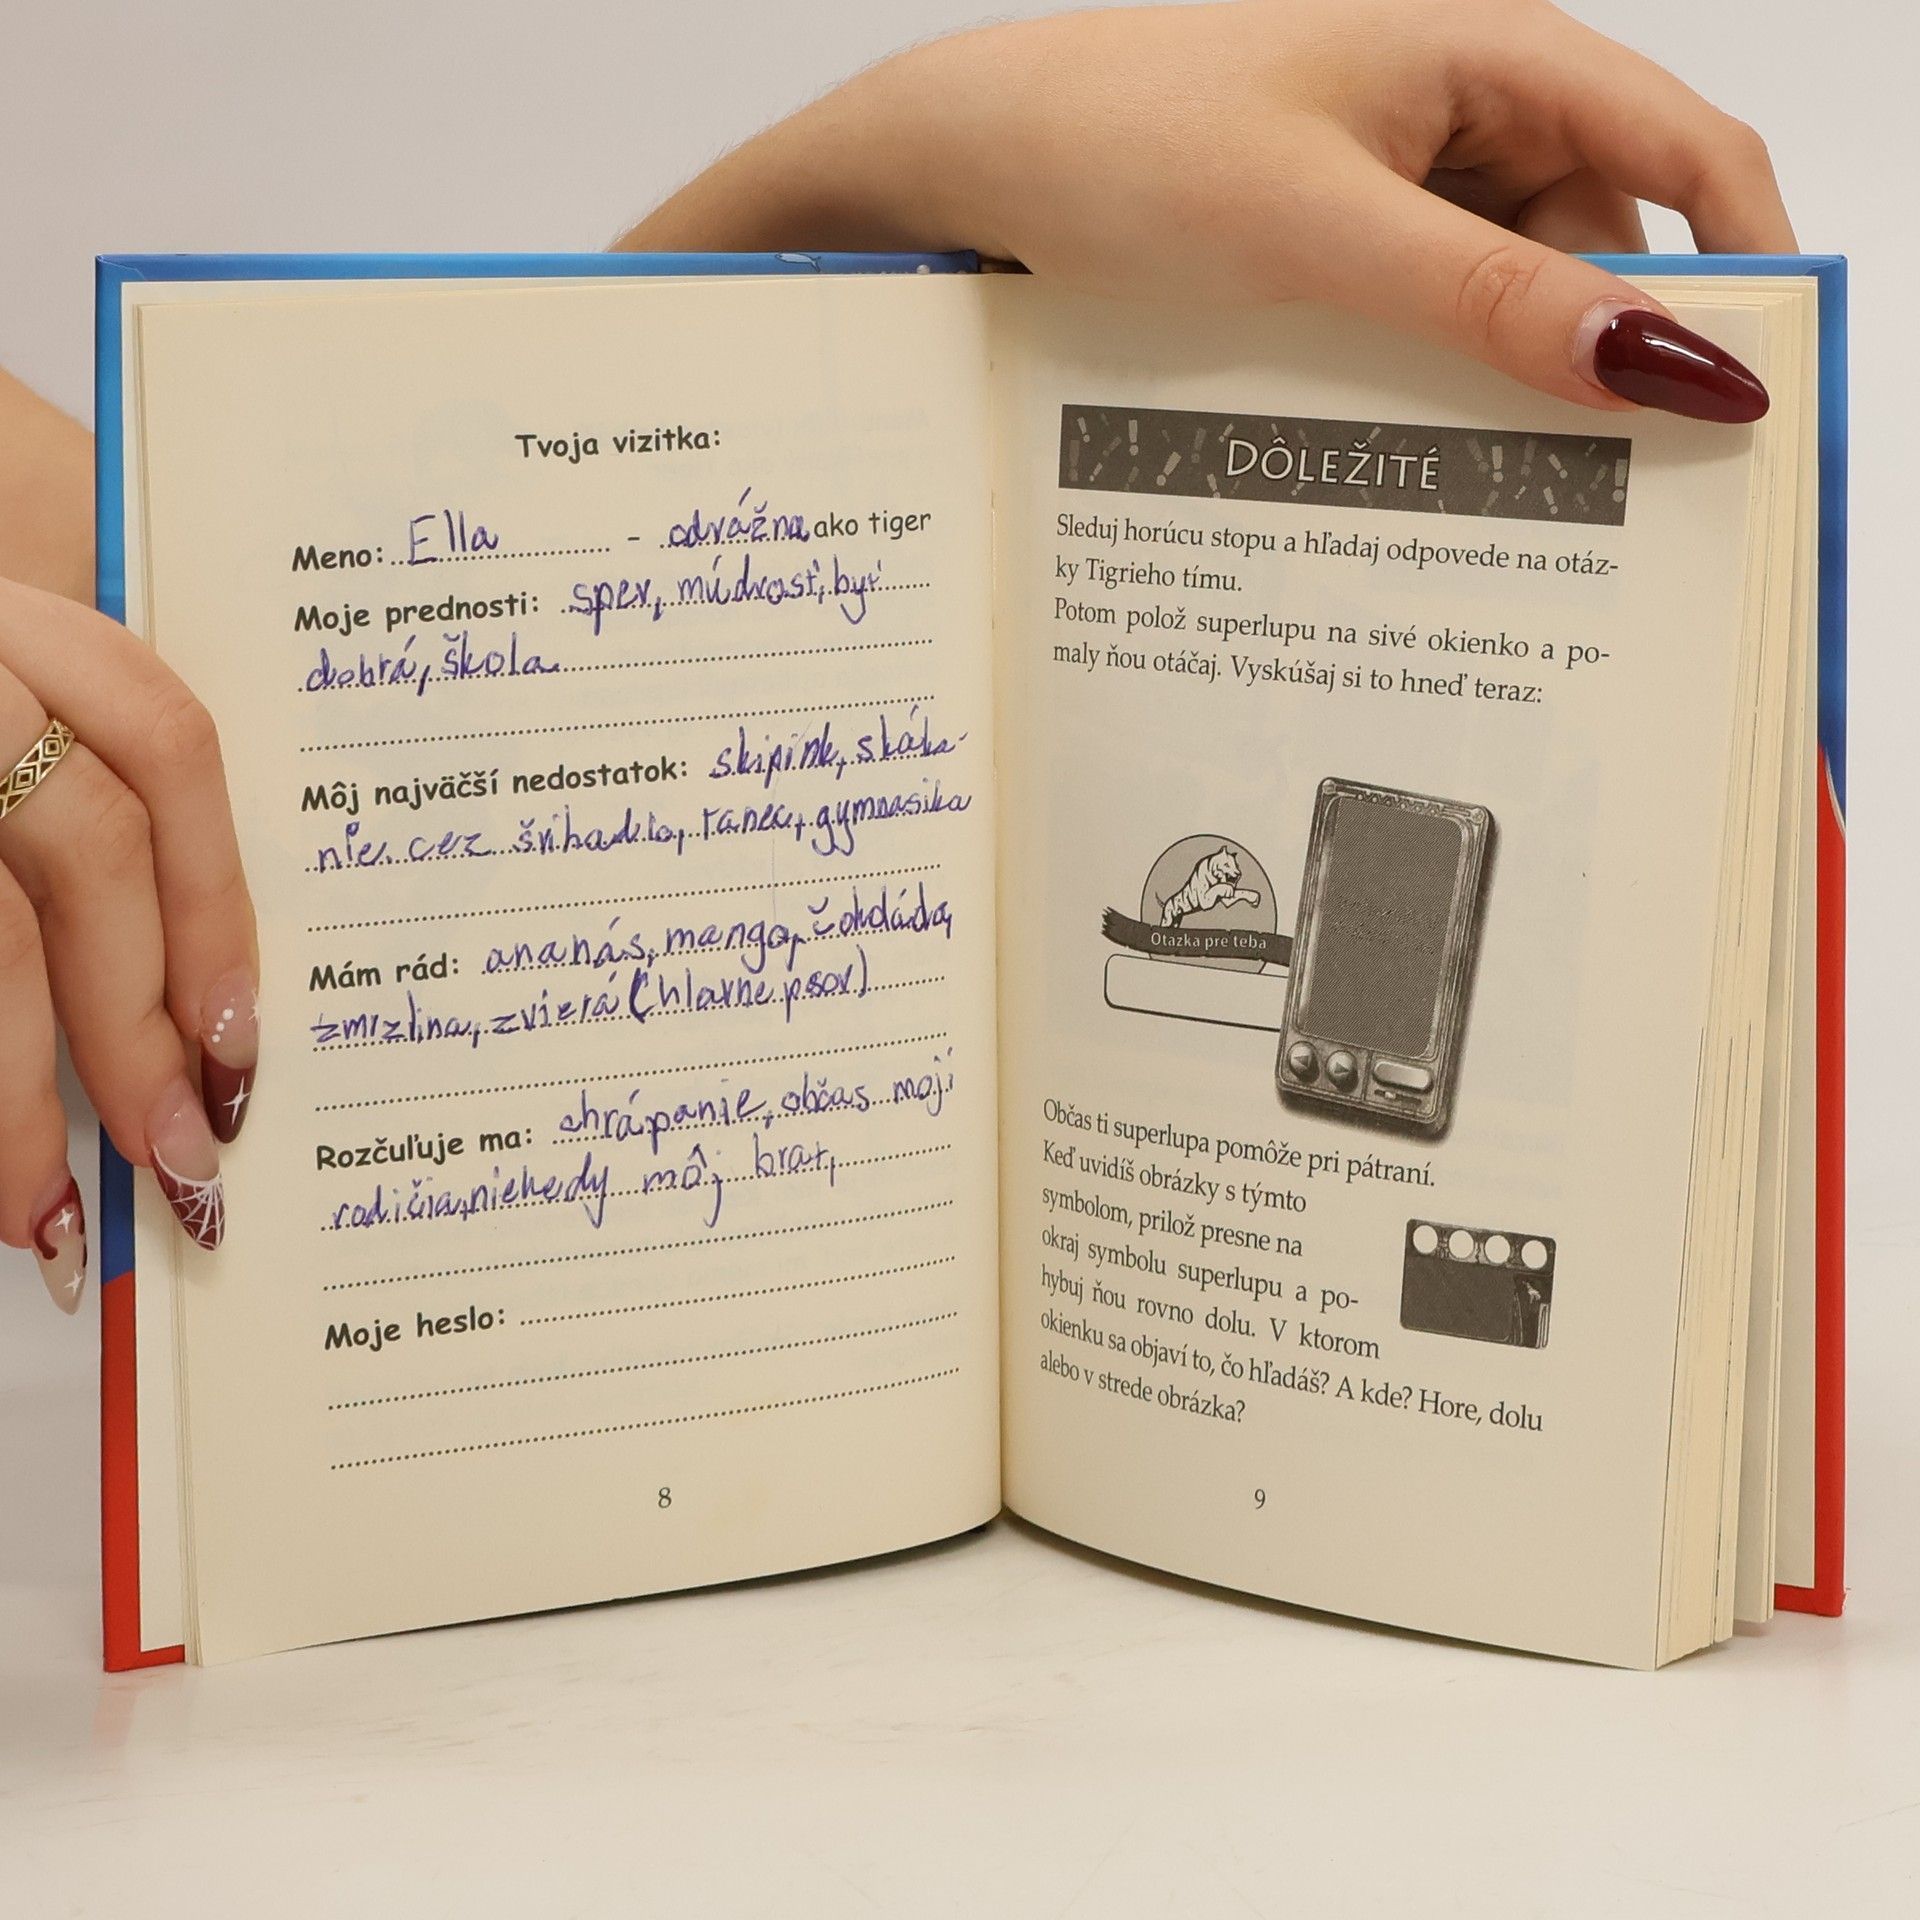 Tvoja vizitka:
Meno: Ella - odvážna ako tiger
Moje prednosti: spev, múdrosť, byť
dobrá, škola
Môj najväčší nedostatok: skipink, skáka-
nie cez švihadlo, tanec, gymnasika
Mám rád: ananás, mango, čokoláda,
zmrzlina, zvierá (hlavne psov)
Rozčuľuje ma: chrápanie, občas moji
rodičia, niekedy môj brat,
Moje heslo:
8
DÔLEŽITÉ
Sleduj horúcu stopu a hľadaj odpovede na otáz-
ky Tigrieho tímu.
Potom polož superlupu na sivé okienko a po-
maly ňou otáčaj. Vyskúšaj si to hneď teraz:
Otázka pre teba
Občas ti superlupa pomôže pri pátraní.
Keď uvidíš obrázky s týmto
symbolom, prilož presne na
okraj symbolu superlupu a po-
hybuj ňou rovno dolu. V ktorom
okienku sa objaví to, čo hľadáš? A kde? Hore, dolu
alebo v strede obrázka?
9